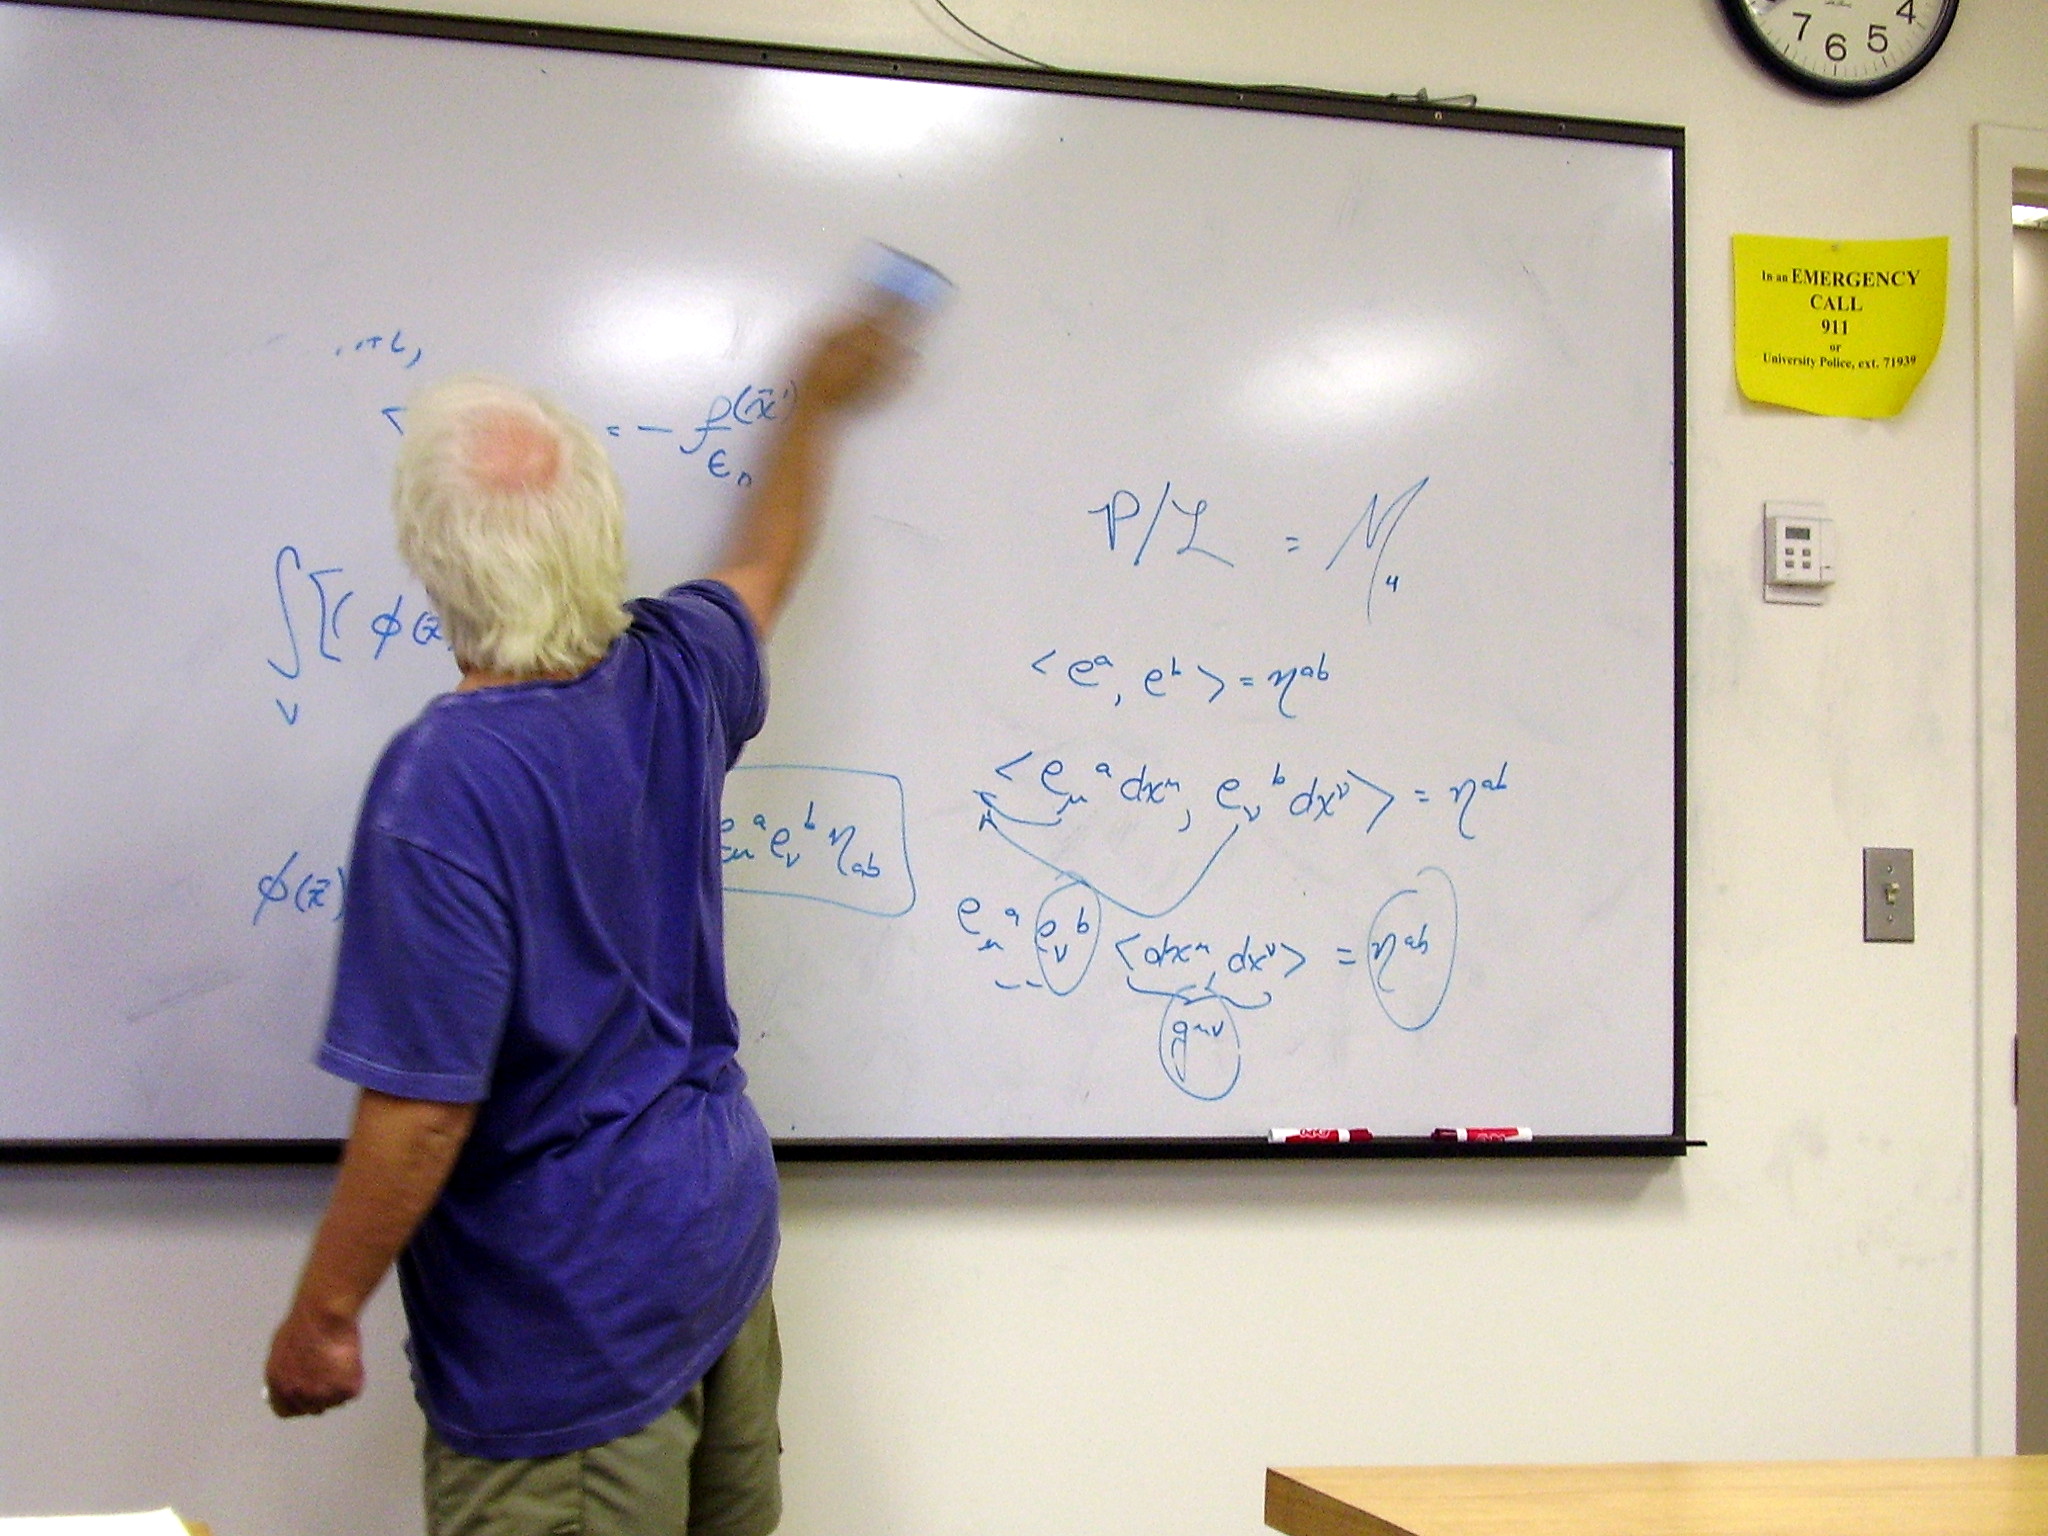 7 6 5 4
In an EMERGENCY
CALL
911
or
University Police, ext. 71939
= - ρ(x̄')
ε₀
∫[( φ(x̄
V
φ(x̄)
e_μ^a e_ν^b η_ab
P/L = M_4
< e^a, e^b > = η^ab
< e_μ^a dx^μ, e_ν^b dx^ν > = η^ab
e_μ^a e_ν^b < dx^μ, dx^ν > = η^ab
g^μν